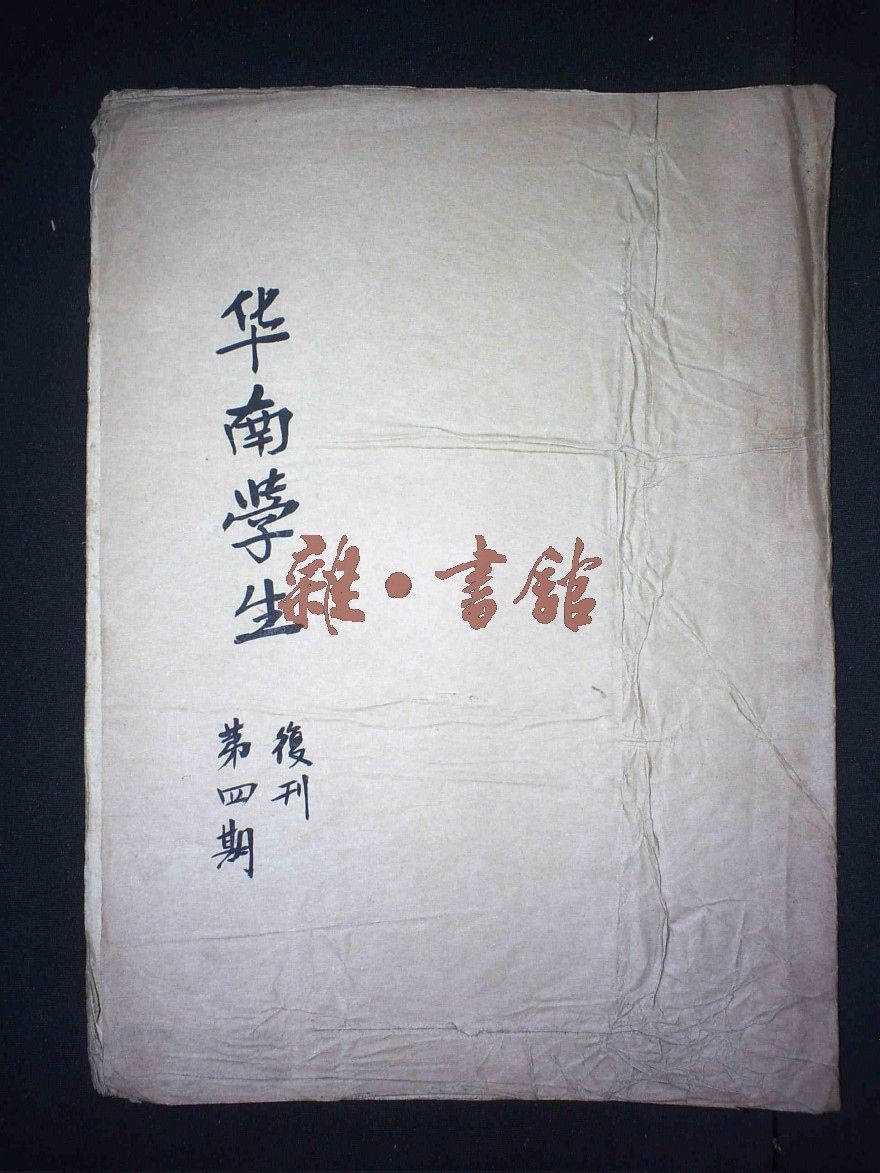 华南学生
復刊
第四期
雜·書館